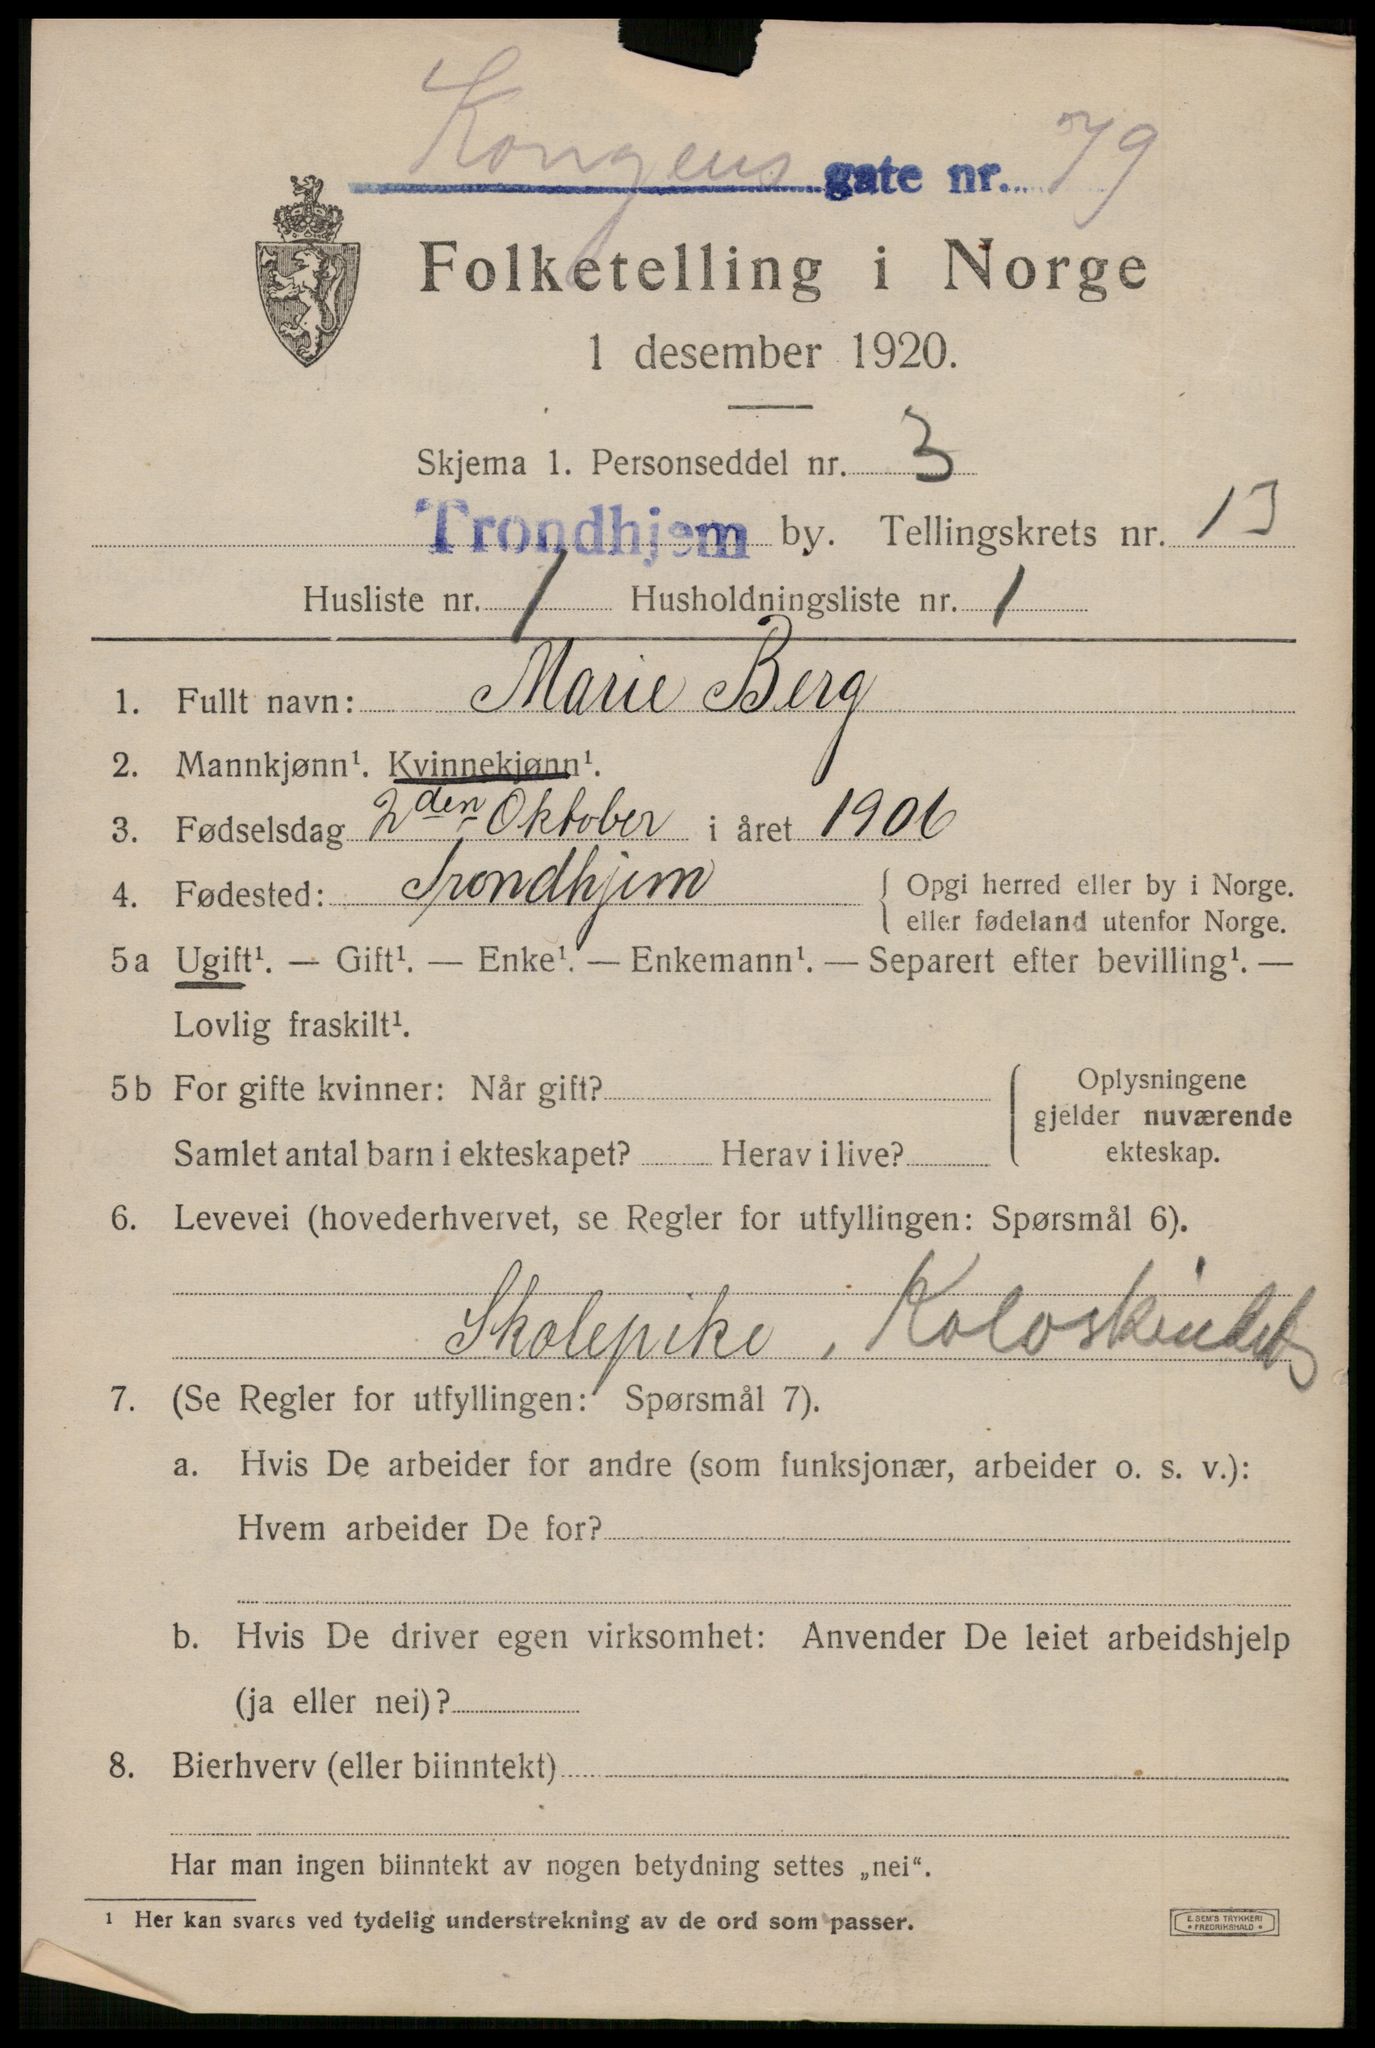 Kongens gate nr. 79
Folketelling i Norge
1 desember 1920.
Skjema 1. Personseddel nr. 3
Trondhjem by. Tellingskrets nr. 13
Husliste nr. 1 Husholdningsliste nr. 1
1. Fullt navn: Marie Berg
2. Mannkjønn¹. Kvinnekjønn¹.
3. Fødselsdag 2den Oktober i året 1906
4. Fødested: Trondhjem { Opgi herred eller by i Norge.
eller fødeland utenfor Norge.
5a Ugift¹. — Gift¹. — Enke¹. — Enkemann¹. — Separert efter bevilling¹. —
Lovlig fraskilt¹.
5b For gifte kvinner: Når gift?
Samlet antal barn i ekteskapet? Herav i live?
Oplysningene
gjelder nuværende
ekteskap.
6. Levevei (hovederhvervet, se Regler for utfyllingen: Spørsmål 6).
Skolepike,
7. (Se Regler for utfyllingen: Spørsmål 7).
a. Hvis De arbeider for andre (som funksjonær, arbeider o. s. v.):
Hvem arbeider De for?
b. Hvis De driver egen virksomhet: Anvender De leiet arbeidshjelp
(ja eller nei)?
8. Bierhverv (eller biinntekt)
Har man ingen biinntekt av nogen betydning settes „nei“.
¹ Her kan svares ved tydelig understrekning av de ord som passer.
E. SEM'S TRYKKERI
FREDRIKSHALD